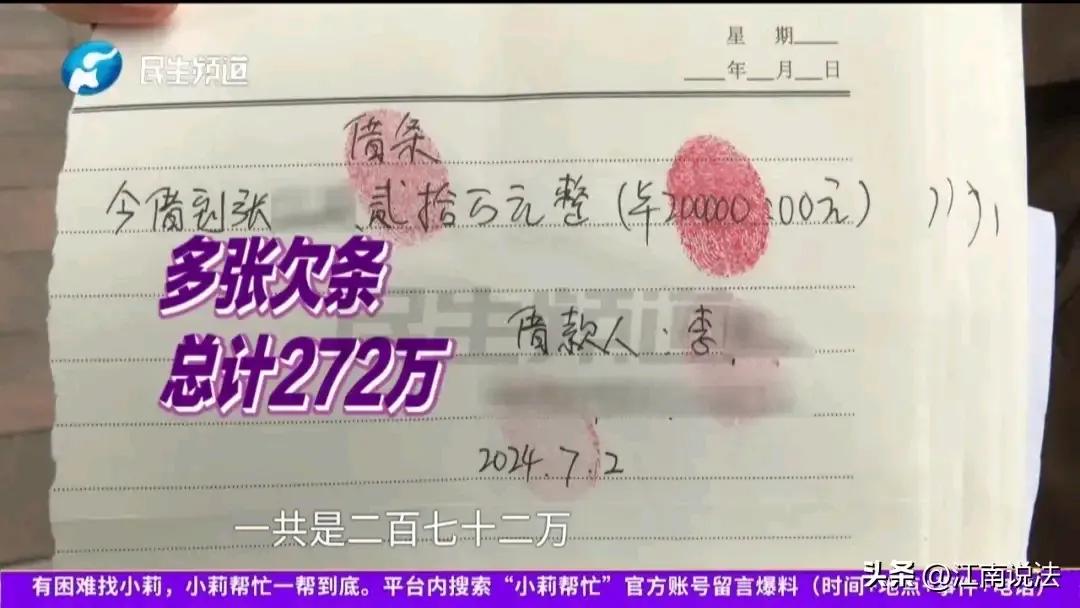 星 期____
____年__月__日
民生频道
借条
今借到张 贰拾万元整(¥200000.00元)
多张欠条
总计272万
民生频道
借款人:李
2024.7.2
一共是二百七十二万
有困难找小莉,小莉帮忙一帮到底。平台内搜索“小莉帮忙”官方账号留言爆料(时间+地点+事件+电话)
头条 @江南说法